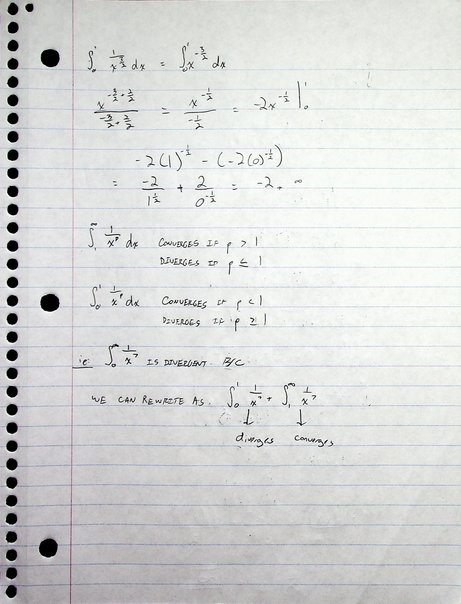 ∫₀¹ 1/x^(3/2) dx = ∫₀¹ x^(-3/2) dx
x^(-3/2 + 2/2) / (-3/2 + 2/2) = x^(-1/2) / (-1/2) = -2x^(-1/2) |₀¹
-2(1)^(-1/2) - (-2(0)^(-1/2))
= -2/1^(1/2) + 2/0^(-1/2) = -2 + ∞
∫₁^∞ 1/x^p dx CONVERGES IF p > 1
DIVERGES IF p ≤ 1
∫₀¹ 1/x^p dx CONVERGES IF p < 1
DIVERGES IF p ≥ 1
ie: ∫₀^∞ 1/x^7 IS DIVERGENT B/C
WE CAN REWRITE AS. ∫₀¹ 1/x^7 + ∫₁^∞ 1/x^7
↓ ↓
diverges converges